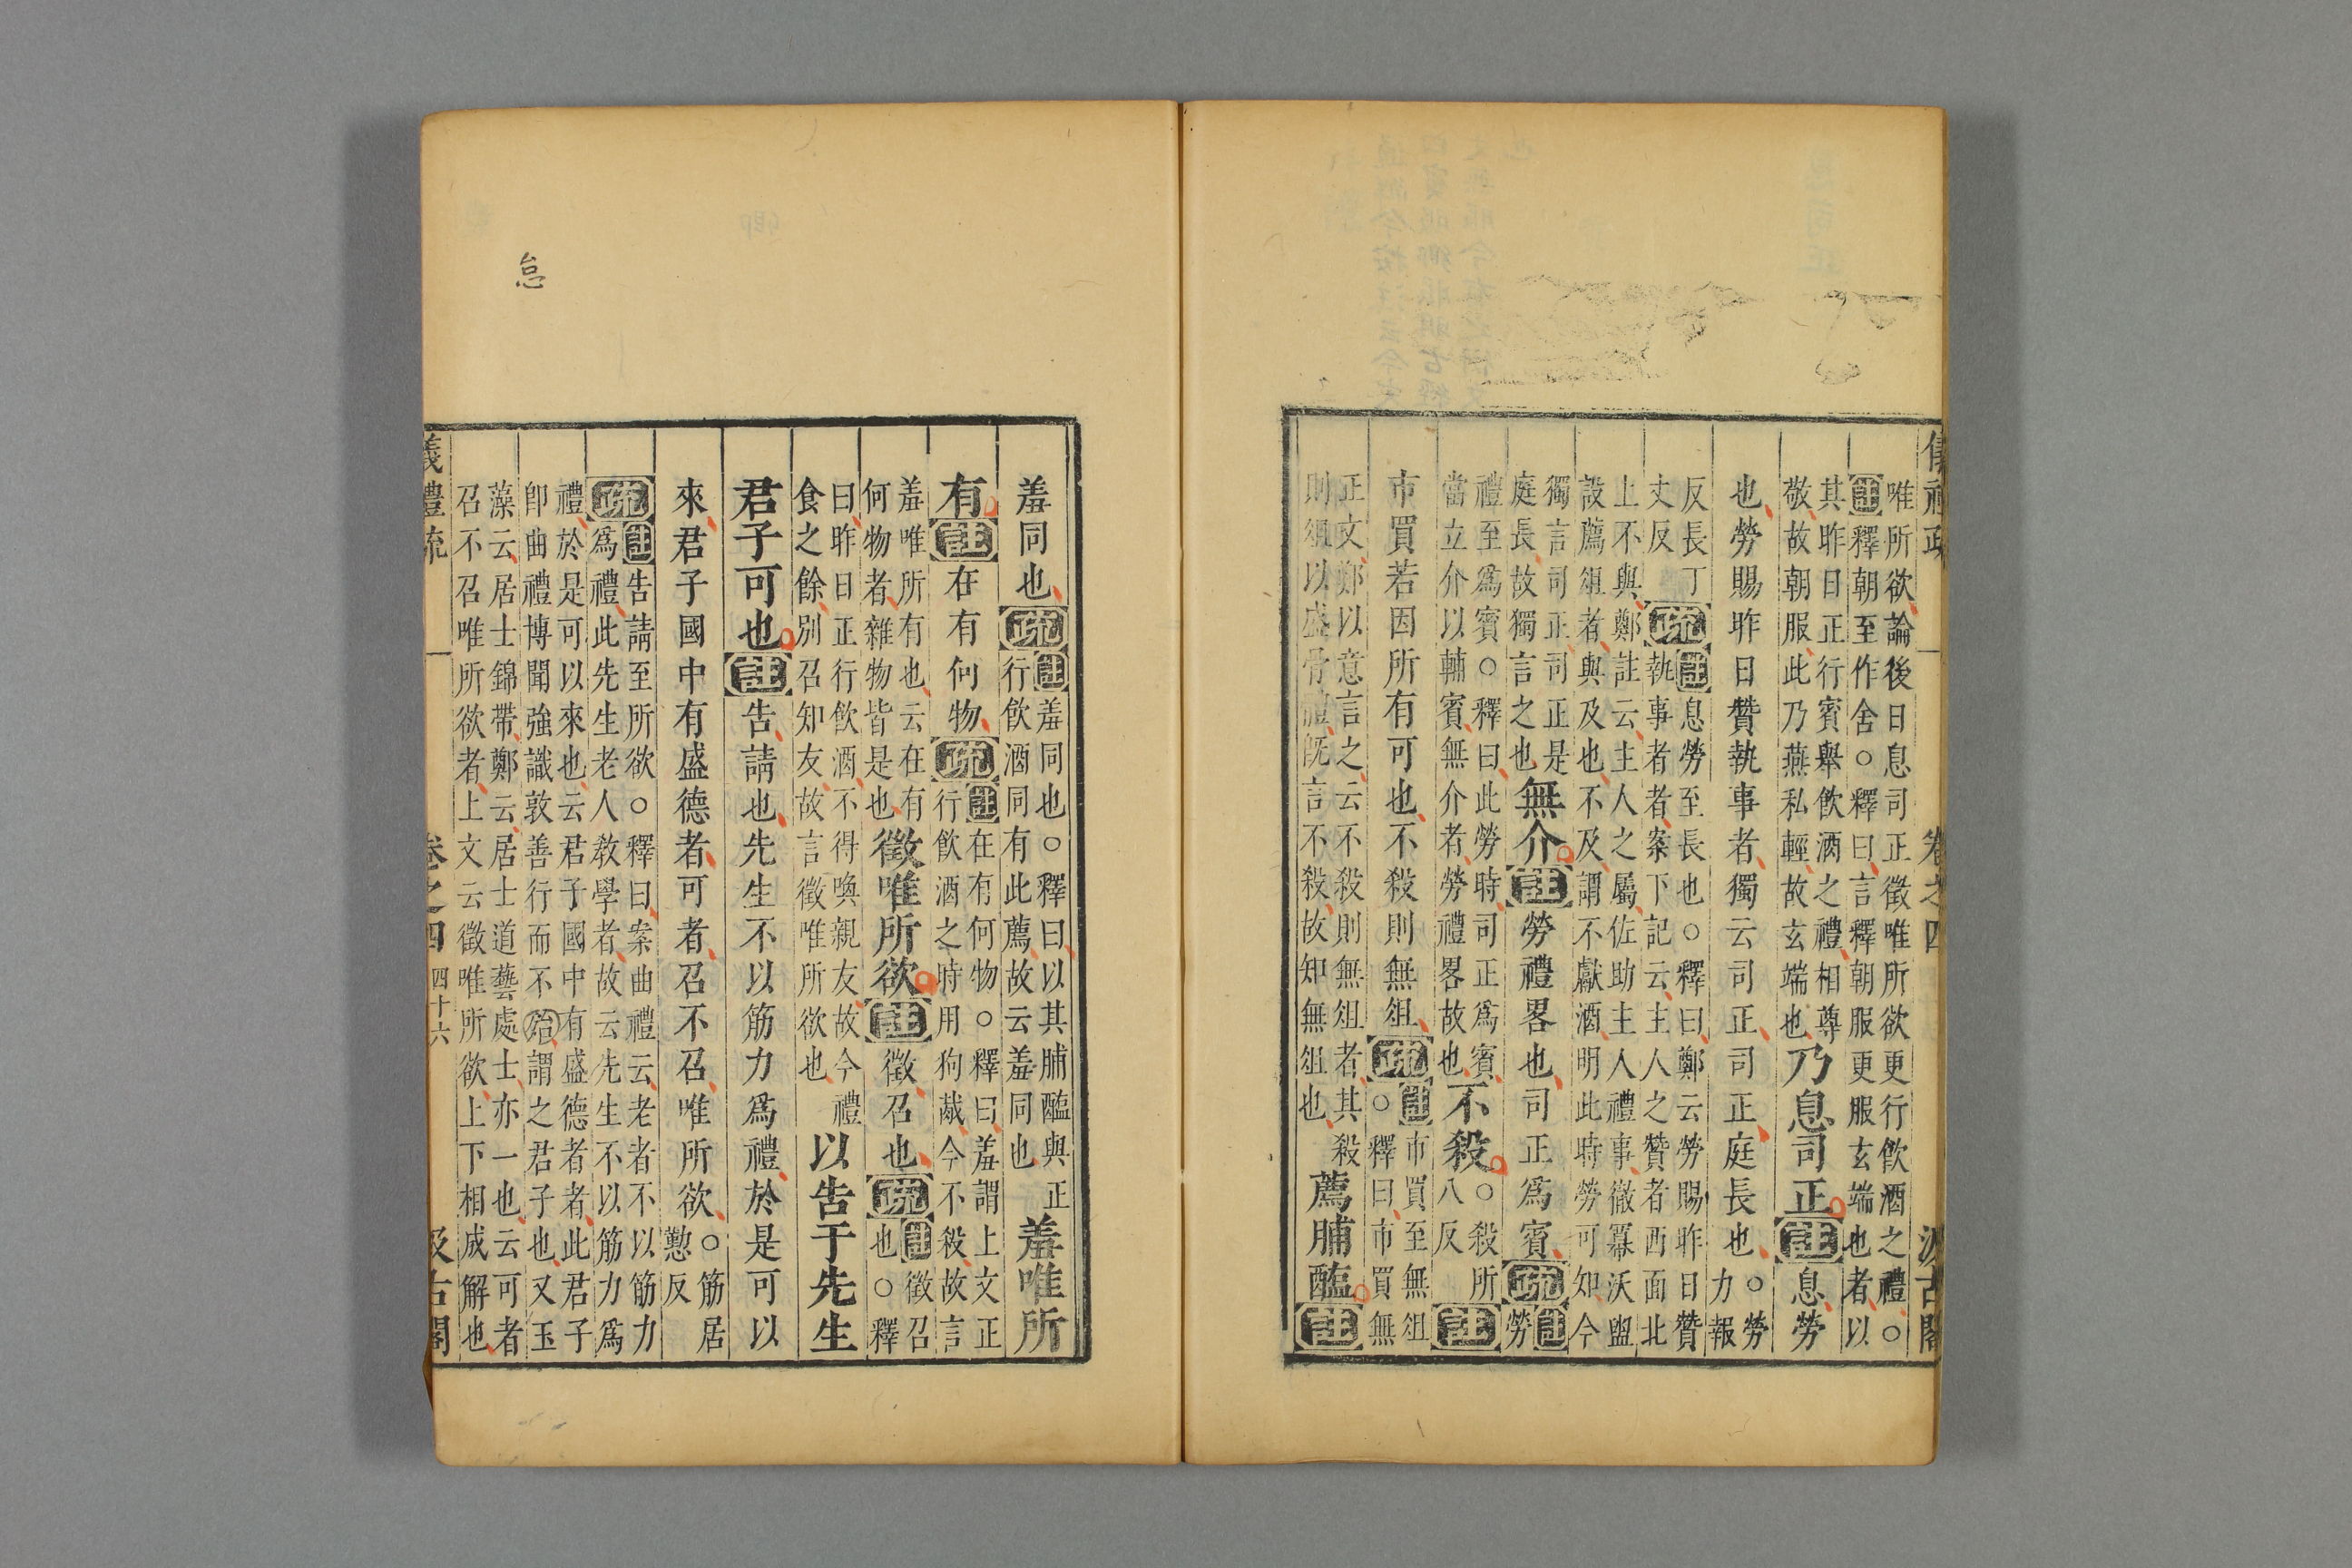 儀禮疏 卷之四 汲古閣
唯所欲論後日息司正徵唯所欲更行飲酒之禮○
註釋朝至作舍○釋曰言釋朝服更服玄端也者以
其昨日正行賓舉飲酒之禮相尊
敬故朝服此乃燕私輕故玄端也
乃息司正註息勞
也勞賜昨日贊執事者獨云司正司正庭長也
○勞
力報
反長丁
丈反
疏
註息勞至長也○釋曰鄭云勞賜昨日贊
執事者者案下記云主人之贊者西面北
上不與鄭註云主人之屬佐助主人禮事徹冪沃盥
設薦俎者與及也不及謂不獻酒明此時勞可如今
獨言司正司正是
庭長故獨言之也
無介註勞禮畧也司正爲賓疏
註
勞
禮至爲賓○釋曰此勞時司正爲賓
當立介以輔賓無介者勞禮畧故也
不殺
○殺所
八反
註
市買若因所有可也不殺則無俎疏
註市買至無俎
○釋曰市買無
正文鄭以意言之云不殺則無俎者其殺
則俎以盛骨體既言不殺故知無俎也
薦脯醢註
羞同也疏
註羞同也○釋曰以其脯醢與正
行飲酒同有此薦故云羞同也
羞唯所
有註在有何物疏
註在有何物○釋曰羞謂上文正
行飲酒之時用狗胾今不殺故言
羞唯所有也云在有
何物者雜物皆是也
徵唯所欲註徵召也疏
註徵召
也○釋
曰昨日正行飲酒不得喚親友故今禮
食之餘別召知友故言徵唯所欲也
以告于先生
君子可也註告請也先生不以筋力爲禮於是可以
來君子國中有盛德者可者召不召唯所欲
○筋居
懃反
疏
註告請至所欲○釋曰案曲禮云老者不以筋力
爲禮此先生老人教學者故云先生不以筋力爲
禮於是可以來也云君子國中有盛德者者此君子
卽曲禮博聞強識敦善行而不治謂之君子也又玉
藻云居士錦帶鄭云居士道藝處士亦一也云可者
召不召唯所欲者上文云徵唯所欲上下相成解也
怠
儀禮疏 卷之四 四十六 汲古閣